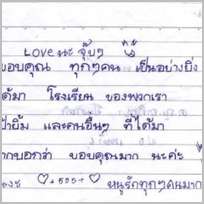 Love นะ จุ๊บๆ
ขอบคุณ ทุกๆคน เป็นอย่างยิ่ง
ได้มา โรงเรียน ของพวกเรา
ป้ายิ้ม และคนอื่นๆ ที่ได้มา
ากบอกว่า ขอบคุณมาก นะค่ะ
+555+ หนูรักทุกๆคนมาก